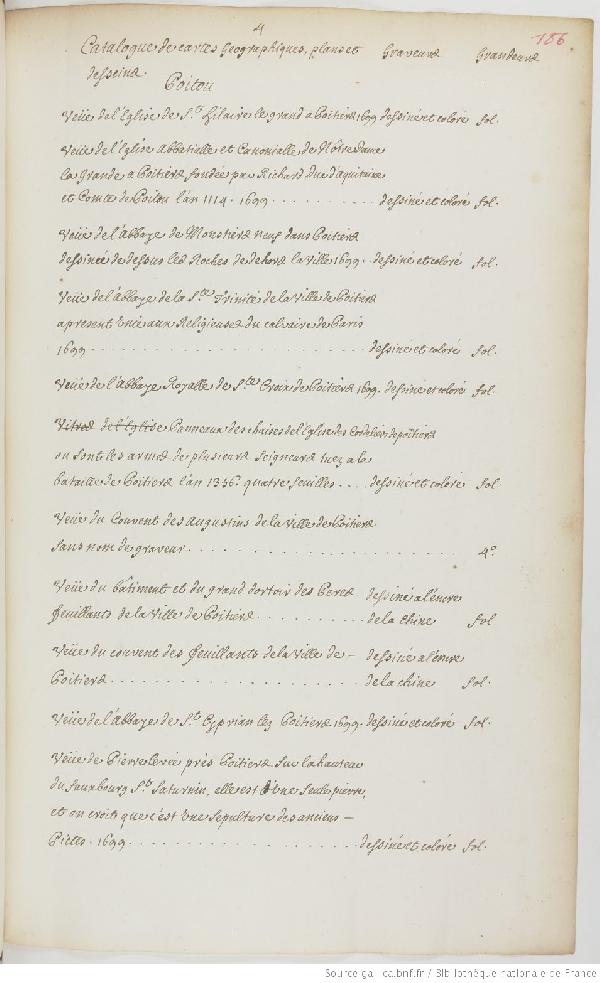 4
186
Catalogue de cartes Geographiques, plans et Graveurs Grandeurs
desseins
Poitou
Veüe de l'Eglise de St. Hilaire le grand a Poitiers 1699 dessiné et coloré fol.
Veüe de l'Eglise abbatialle et Canonialle de Nôtre Dame
la Grande a Poitiers fondée par Richard duc d'aquitaine
et Comte de Poitou l'an 1114. 1699 . . . . . . . . . dessiné et coloré fol.
Veüe de l'abbaye de Monstiers neuf dans Poitiers
dessinée de dessus les Roches de dehors la Ville 1699. dessiné et coloré fol.
Veüe de l'abbaye de la Ste. Trinité de la Ville de Poitiers
apresent unie aux Religieuses du calvaire de Paris
1699 . . . . . . . . . . . . . . . . . . dessiné et coloré fol.
Veüe de l'abbaye Royalle de Ste. Croix de Poitiers 1699. dessiné et coloré fol.
Vitres de l'Eglise Panneaux des chaises de l'Eglise des Cordeliers de poitiers
ou sont les armes de plusieurs Seigneurs tuez a la
bataille de Poitiers l'an 1356. quatre feuilles . . . . dessiné et coloré fol
Veüe du Couvent des augustins de la Ville de Poitiers
sans nom de graveur . . . . . . . . . . . . . . . . . 4o
Veüe du bâtiment et du grand dortoir des Peres dessiné a l'encre
feuillants de la Ville de Poitiers . . . . . . . . . de la chine fol
Veüe du couvent des feuillants de la Ville de – dessiné a l'encre
Poitiers . . . . . . . . . . . . . . . . . de la chine fol.
Veüe de l'abbaye de St. Cyprian lez Poitiers 1699. dessiné et coloré fol.
Veüe de Pierre levée près Poitiers sur la hauteur
du fauxbourg St. Saturnin, elle est d'une seule pierre,
et on croit que c'est une sepulture des anciens –
Pictes. 1699 . . . . . . . . . . . . . . . dessiné et coloré fol.
Source gallica.bnf.fr / Bibliothèque nationale de France